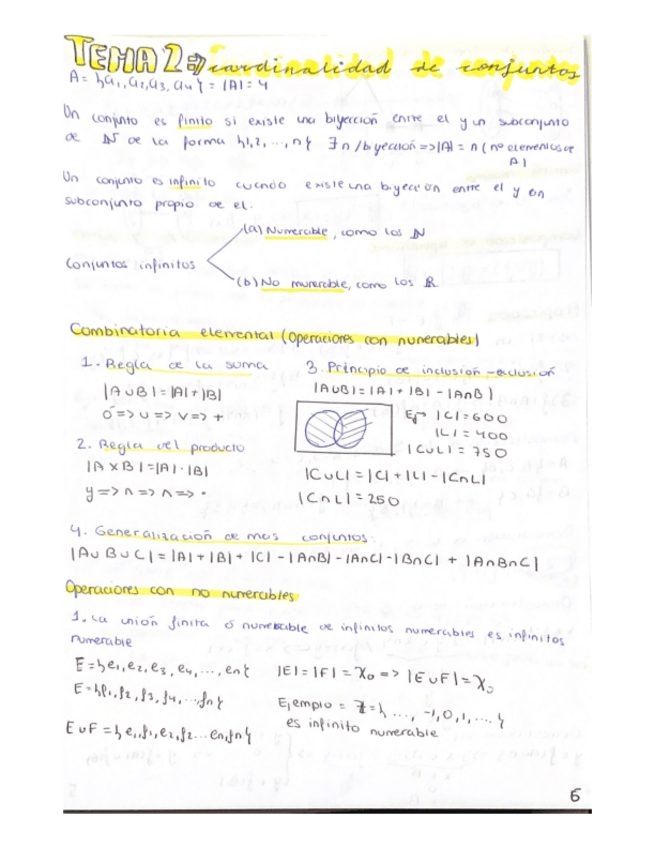 TEMA 2 => Cardinalidad de conjuntos
A = {a₁, a₂, a₃, a₄} = |A| = 4
Un conjunto es finito si existe una biyección entre el y un subconjunto
de ℕ de la forma {1,2, ..., n} ∃ n / biyección => |A| = n (nº elementos de
A)
Un conjunto es infinito cuando existe una biyección entre el y un
subconjunto propio de el.
(a) Numerable, como los ℕ
Conjuntos infinitos
(b) No numerable, como los ℝ
Combinatoria elemental (Operaciones con numerables)
1. Regla de la suma
|A∪B| = |A| + |B|
O => ∪ => ∨ => +
2. Regla del producto
|A × B| = |A| · |B|
y => ∩ => ∧ => ·
3. Principio de inclusión-exclusión
|A∪B| = |A| + |B| - |A∩B|
Ej => |C| = 600
|L| = 400
|C∪L| = 750
|C∪L| = |C| + |L| - |C∩L|
|C∩L| = 250
4. Generalización de mas conjuntos:
|A∪B∪C| = |A| + |B| + |C| - |A∩B| - |A∩C| - |B∩C| + |A∩B∩C|
Operaciones con no numerables
1. La unión finita o numerable de infinitos numerables es infinitos
numerable
E = {e₁, e₂, e₃, e₄, ..., en}
E = {f₁, f₂, f₃, f₄, ... fn}
E∪F = {e₁, f₁, e₂, f₂ ... en, fn}
|E| = |F| = ℵ₀ => |E∪F| = ℵ₀
Ejemplo = ℤ = {..., -1, 0, 1, ...}
es infinito numerable
6